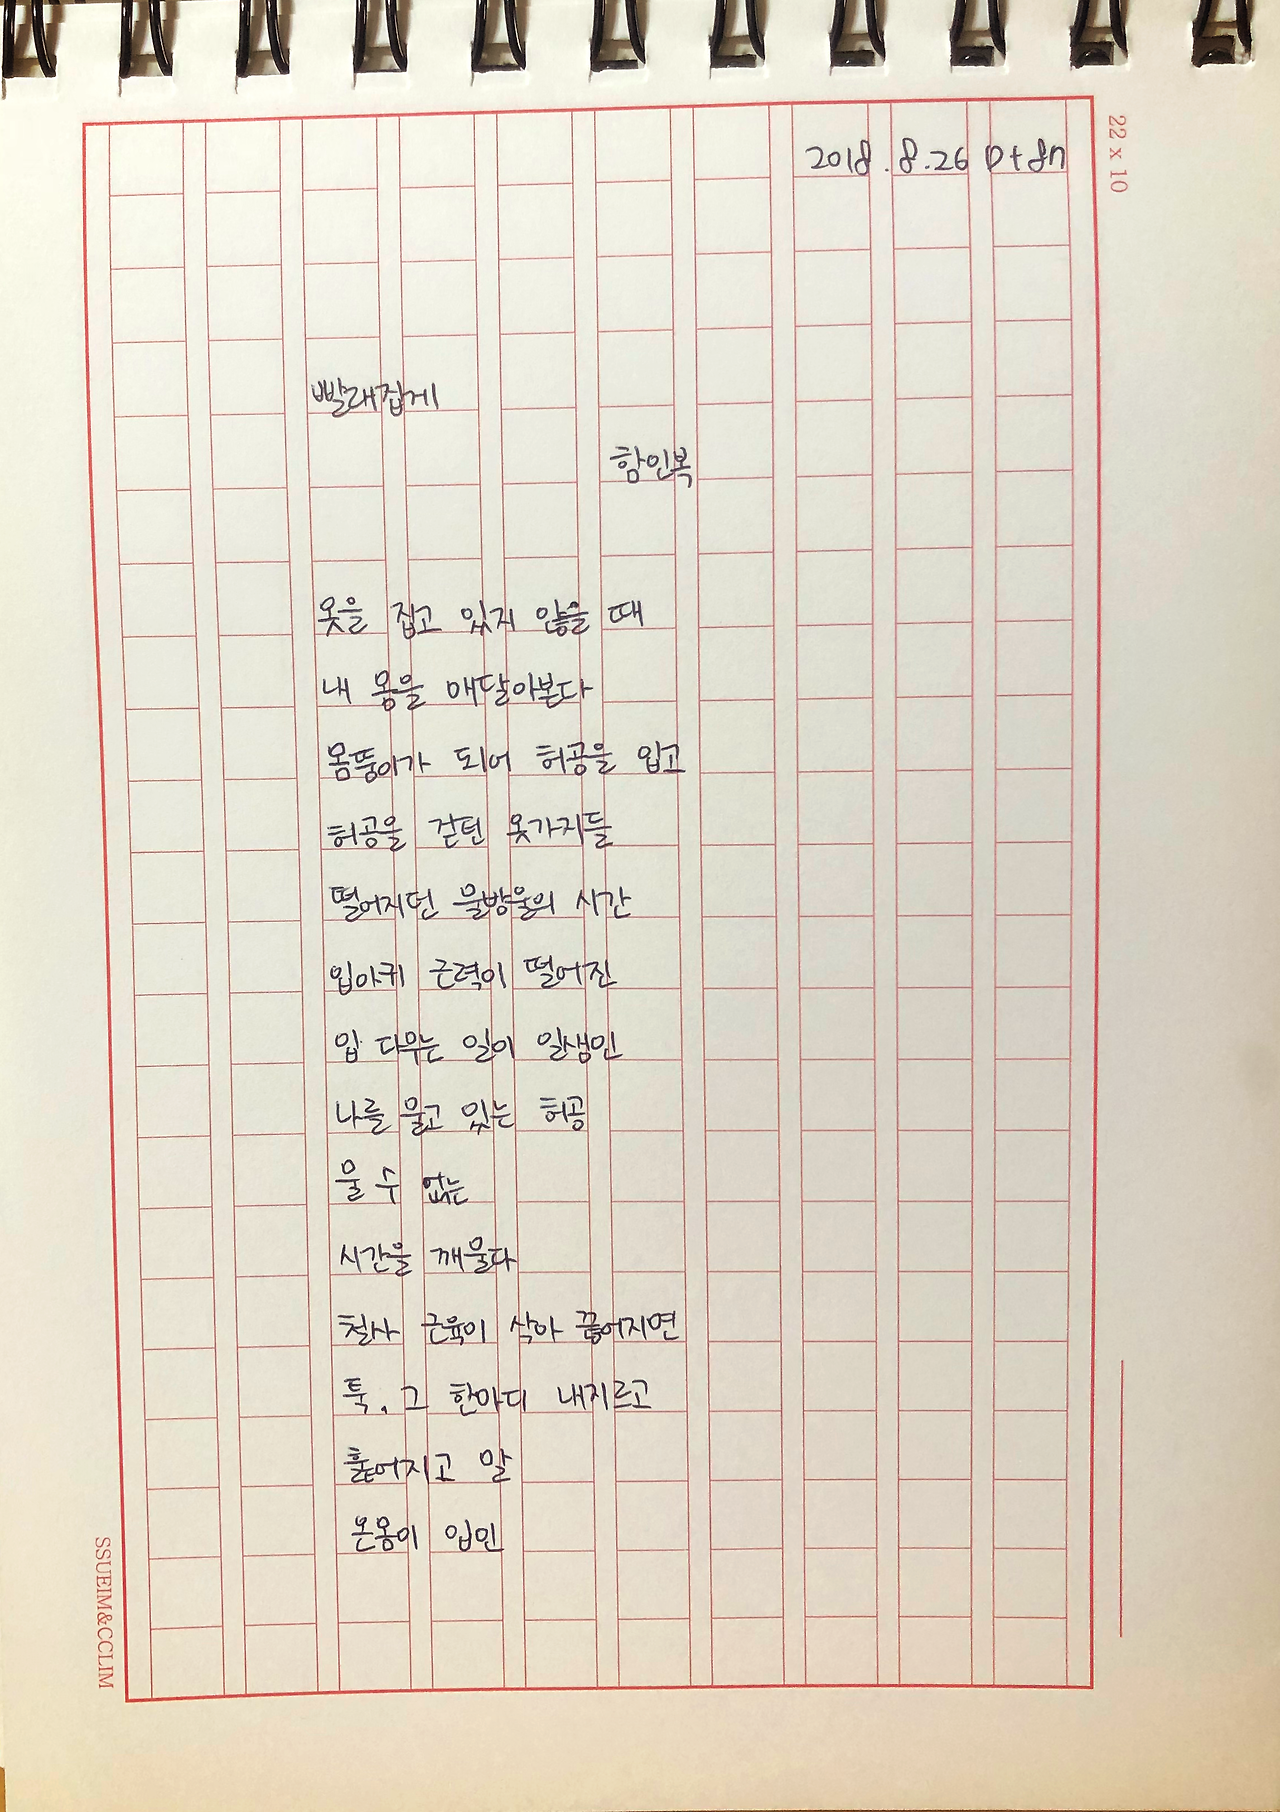 2018.8.26 D+87
22 x 10
빨래집게
함민복
옷을 집고 있지 않을 때
내 몸을 매달아본다
몸뚱이가 되어 허공을 입고
허공을 걷던 옷가지들
떨어지던 물방울의 시간
입아귀 근력이 떨어진
입 다무는 일이 일생인
나를 물고 있는 허공
물 수 없는
시간을 깨물다
철사 근육이 삭아 끊어지면
툭, 그 한마디 내지르고
흩어지고 말
온몸이 입인
SSUEIM&CCLIM